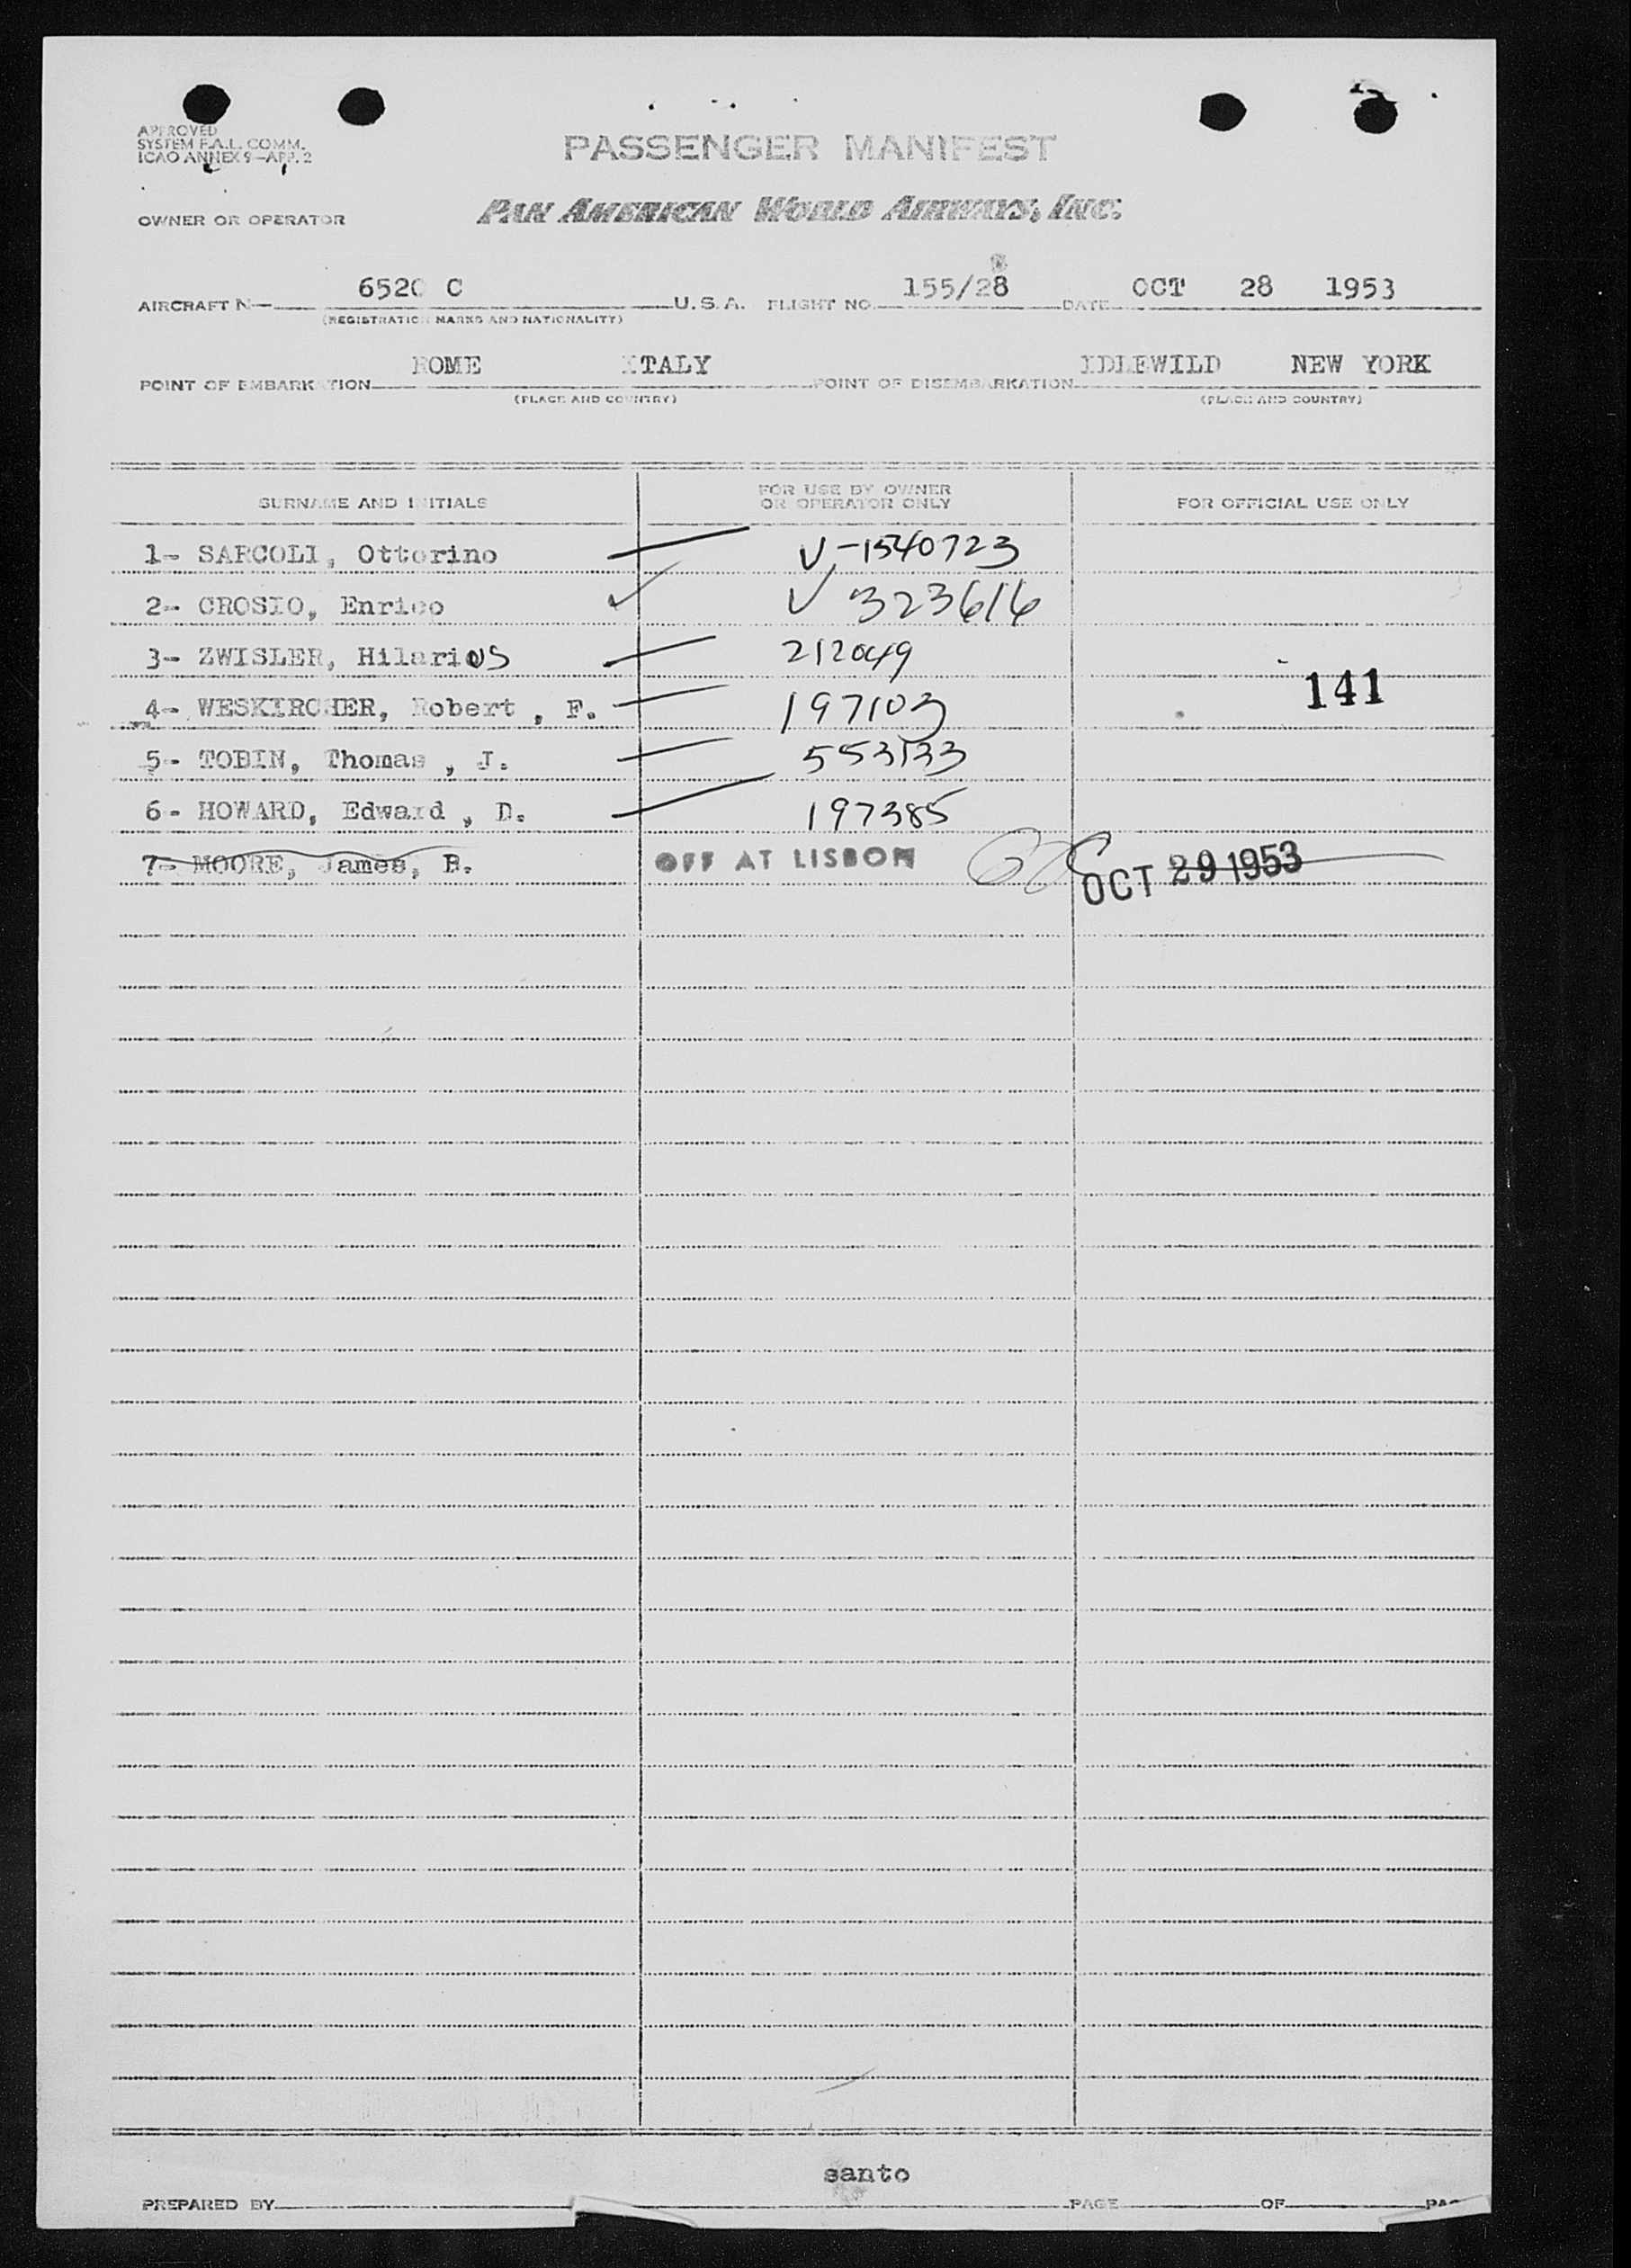 APPROVED
SYSTEM F.A.L. COMM.
ICAO ANNEX 9-APP. 2
PASSENGER MANIFEST
OWNER OR OPERATOR PAN AMERICAN WORLD AIRWAYS, INC.
AIRCRAFT N- 6520 C U.S.A. FLIGHT NO. 155/28 DATE OCT 28 1953
(REGISTRATION MARKS AND NATIONALITY)
POINT OF EMBARKATION ROME ITALY POINT OF DISEMBARKATION IDLEWILD NEW YORK
(PLACE AND COUNTRY) (PLACE AND COUNTRY)
SURNAME AND INITIALS FOR USE BY OWNER OR OPERATOR ONLY FOR OFFICIAL USE ONLY
1- SARCOLI, Ottorino V-1540723
2- CROSIO, Enrico V 323616
3- ZWISLER, Hilarius 212049
141
4- WESKIRCHER, Robert , F. 197103
5- TOBIN, Thomas , J. 553133
6- HOWARD, Edward , D. 197385
7- MOORE, James, B. OFF AT LISBON OCT 29 1953
santo
PREPARED BY PAGE OF